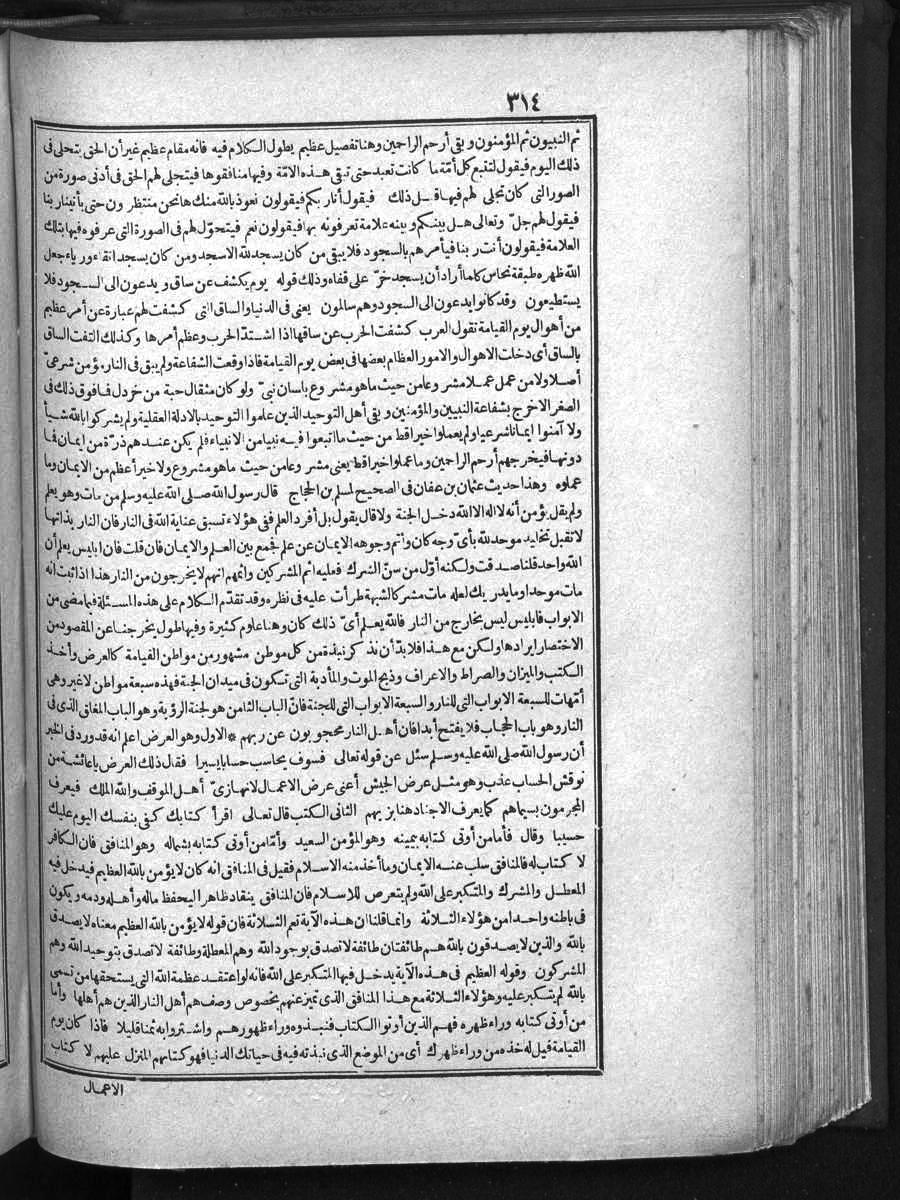 ٣١٤
ثم النبيون ثم المؤمنون وبقي أرحم الراحمين وهنا تفصيل عظيم يطول الكلام فيه فانه مقام عظيم غير أن الحق يتجلى فى
ذلك اليوم فيقول لتتبع كل أمّة ما كانت تعبد حتى تبقى هذه الامّة وفيها منافقوها فيتجلى لهم الحق فى أدنى صورة من
الصور التى كان تجلى لهم فيها قبل ذلك فيقول أنا ربكم فيقولون نعوذ بالله منك ها نحن منتظرون حتى يأتينا ربنا
فيقول لهم جلّ وتعالى هل بينكم وبينه علامة تعرفونه بها فيقولون نعم فيتحوّل لهم فى الصورة التى عرفوه فيها بتلك
العلامة فيقولون أنت ربنا فيأمرهم بالسجود فلا يبقى من كان يسجد لله الا سجد ومن كان يسجد اتقاء ورياء جعل
الله ظهره طبقة نحاس كلما أراد أن يسجد خرّ على قفاه وذلك قوله يوم يكشف عن ساق ويدعون الى السجود فلا
يستطيعون وقد كانوا يدعون الى السجود وهم سالمون يعنى فى الدنيا والساق التى كشفت لهم عبارة عن أمر عظيم
من أهوال يوم القيامة تقول العرب كشفت الحرب عن ساقها اذا اشتدّ الحرب وعظم أمرها وكذلك التفت الساق
بالساق أى دخلت الاهوال والامور العظام بعضها فى بعض يوم القيامة فاذا وقعت الشفاعة ولم يبق فى النار مؤمن شرعىّ
أصلا ولا من عمل عملا مشروعا من حيث ما هو مشروع بلسان نبىّ ولو كان مثقال حبة من خردل فما فوق ذلك فى
الصغر الا خرج بشفاعة النبيين والمؤمنين وبقى أهل التوحيد الذين علموا التوحيد بالادلة العقلية ولم يشركوا بالله شيأ
ولا آمنوا ايمانا شرعيا ولم يعملوا خيرا قط من حيث ما اتبعوا فيه نبيا من الانبياء فلم يكن عندهم ذرّة من ايمان فما
دونها فيخرجهم أرحم الراحمين وما عملوا خيرا قط يعنى مشروعا من حيث ما هو مشروع ولا خير أعظم من الايمان وما
عملوه وهذا حديث عثمان بن عفان فى الصحيح لمسلم بن الحجاج قال رسول الله صلى الله عليه وسلم من مات وهو يعلم
ولم يقل يؤمن أنه لا اله الا الله دخل الجنة ولا قال يقول بل أفرد العلم ففى هؤلاء تسبق عناية الله فى النار فان النار بذاتها
لا تقبل تخليد موحد لله بأىّ وجه كان وأتم وجوهه الايمان عن علم فجمع بين العلم والايمان فان قلت فان ابليس يعلم أن
الله واحد قلنا صدقت ولكنه أوّل من سنّ الشرك فعليه اثم المشركين واثمهم انهم لا يخرجون من النار هذا اذا ثبت انه
مات موحدا وما يدريك لعله مات مشركا لشبهة طرأت عليه فى نظره وقد تقدّم الكلام على هذه المسئلة فيما مضى من
الابواب فابليس ليس بخارج من النار فالله يعلم أىّ ذلك كان وهنا علوم كثيرة وفيها طول يخرجنا عن المقصود من
الاختصار ايرادها ولكن مع هذا فلا بدّ أن نذكر نبذة من كل موطن مشهور من مواطن القيامة كالعرض وأخذ
الكتب والميزان والصراط والاعراف وذبح الموت والمأدبة التى تكون فى ميدان الجنة فهذه سبعة مواطن لا غير وهى
أمّهات للسبعة الابواب التى للنار والسبعة الابواب التى للجنة فانّ الباب الثامن هو لجنة الرؤية وهو الباب المغلق الذى فى
النار وهو باب الحجاب فلا يفتح أبدا فان أهل النار محجوبون عن ربهم * الاول وهو العرض اعلم انه قد ورد فى الخبر
أن رسول الله صلى الله عليه وسلم سئل عن قوله تعالى فسوف يحاسب حسابا يسيرا فقال ذلك العرض يا عائشة من
نوقش الحساب عذب وهو مثل عرض الجيش أعنى عرض الاعمال لانها زىّ أهل الموقف والله الملك فيعرف
المجرمون بسيماهم كما يعرف الاجناد هنا بزيهم الثانى الكتب قال تعالى اقرأ كتابك كفى بنفسك اليوم عليك
حسيبا وقال فأما من أوتى كتابه بيمينه وهو المؤمن السعيد وأمّا من أوتى كتابه بشماله وهو المنافق فان الكافر
لا كتاب له فالمنافق سلب عنه الايمان وما أخذ منه الاسلام فقيل فى المنافق انه كان لا يؤمن بالله العظيم فيدخل فيه
المعطل والمشرك والمتكبر على الله ولم يتعرض للاسلام فان المنافق ينقاد ظاهرا ليحفظ ماله وأهله ودمه ويكون
فى باطنه واحدا من هؤلاء الثلاثة وانما قلنا ان هذه الآية تعم الثلاثة فان قوله لا يؤمن بالله العظيم معناه لا يصدق
بالله والذين لا يصدقون بالله هم طائفتان طائفة لا تصدق بوجود الله وهم المعطلة وطائفة لا تصدق بتوحيد الله وهم
المشركون وقوله العظيم فى هذه الآية يدخل فيها المتكبر على الله فانه لو اعتقد عظمة الله التى يستحقها من تسمى
بالله لم يتكبر عليه وهؤلاء الثلاثة مع هذا المنافق الذى تميز عنهم بخصوص وصف هم أهل النار الذين هم أهلها وأما
من أوتى كتابه وراء ظهره فهم الذين أوتوا الكتاب فنبذوه وراء ظهورهم واشتروا به ثمنا قليلا فاذا كان يوم
القيامة قيل له خذه من وراء ظهرك أى من الموضع الذى نبذته فيه فى حياتك الدنيا فهو كتابهم المنزل عليهم لا كتاب
الاعمال